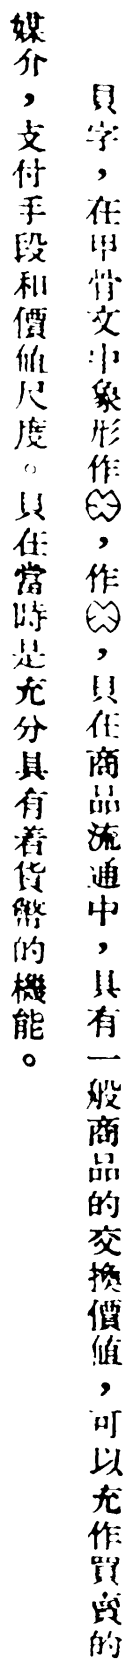 貝字，在甲骨文中象形作，作，貝在商品流通中，具有一般商品的交換價值，可以充作買賣的
媒介，支付手段和價值尺度。貝在當時是充分具有着貨幣的機能。